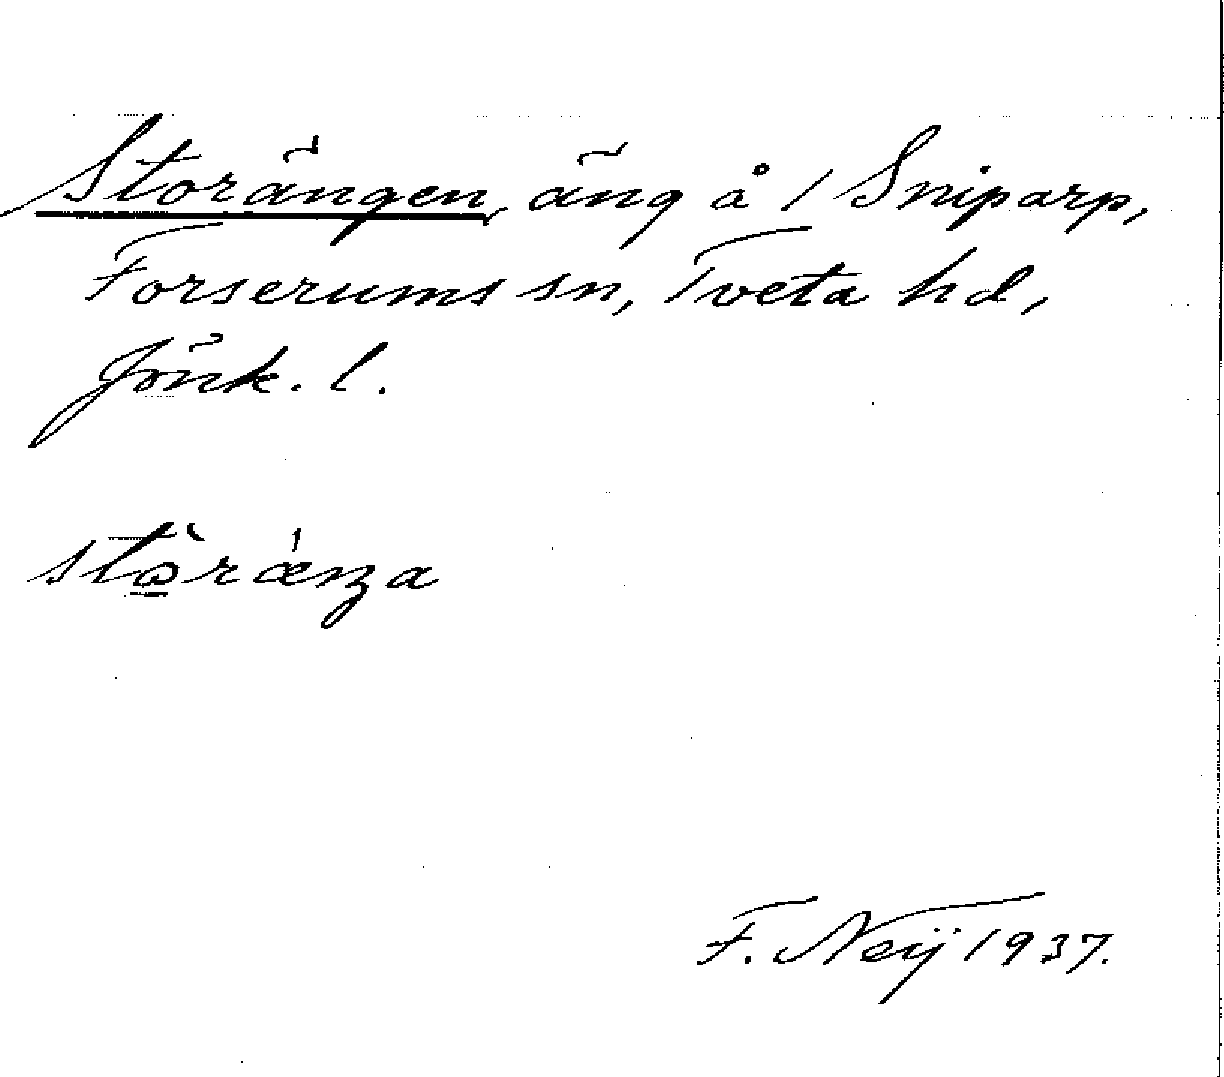 Storängen, äng å 1 Sniparp,
Forserums sn, Tveta hd,
Jönk. l.
stò̱ràŋa
F. Neij 1937.